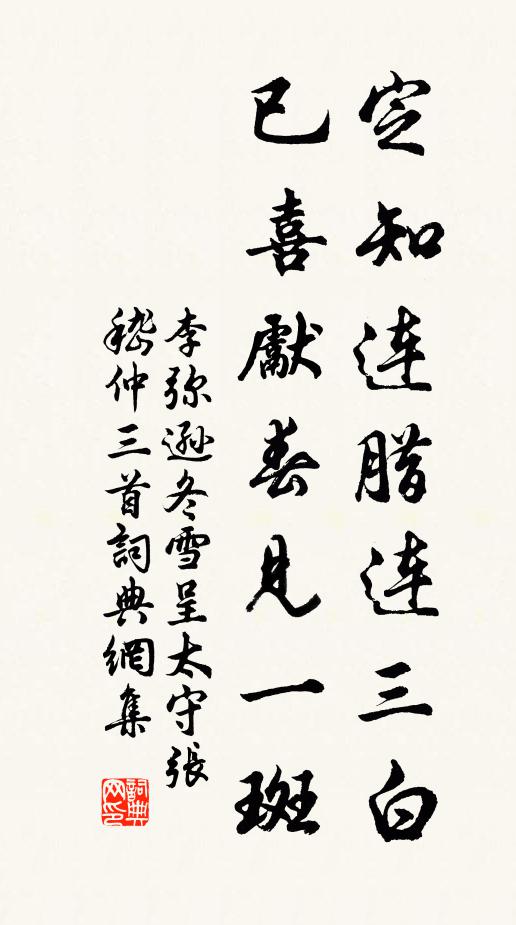 定知连腊连三白
已喜獻春見一斑
李弥遜冬雪呈太守張
嵇仲三首詞典網集
詞典网印